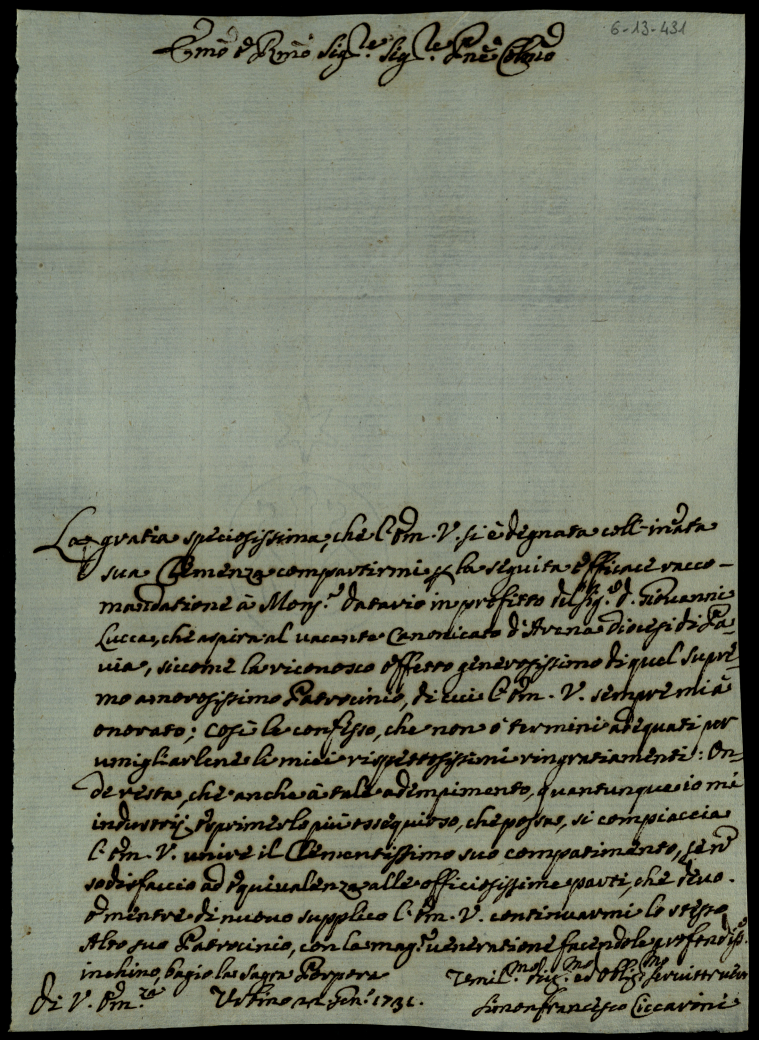 6-13-431
Emo e Rmo Sig.re Sig.re Pne Colmo
La gratia speciosissima, che l'Em. V. si è degnata coll'innata
sua Clemenza compartirmi p la seguita efficace racco-
mandatione à Mons.r Datario in profitto del Sig.r D. Giovanni
Lucca, che aspira al vacante Canonicato d'Arena Diocesi di Pa-
via, siccome la riconosco effetto generosissimo di quel supre-
mo amorosissimo Patrocinio, di cui l'Em. V. sempre mi à
onorato; così le confesso, che non ò termini adequati per
umigliarlene li miei rispettosissimi ringratiamenti: On-
de resta, che anche à tale adempimento, quantunque io mi
industrij esprimerlo più ossequioso, che possa, si compiaccia
l'Em. V. unire il Clementissimo suo compatimento, se nō
sodisfaccio ad equivalenza alle officiosissime parti, che devo.
E mentre di nuovo supplico l'Em. V. continuarmi lo stesso
Alto suo Patrocinio, con la mag.r veneratione facendole profondiss.o
inchino, bagio la Sagra Porpora
Di V. Em.za Urbino Gen.o 1731. Umil.mo Div.mo ed Oblig.mo Servitor vero
Simon Francesco Ciccarini